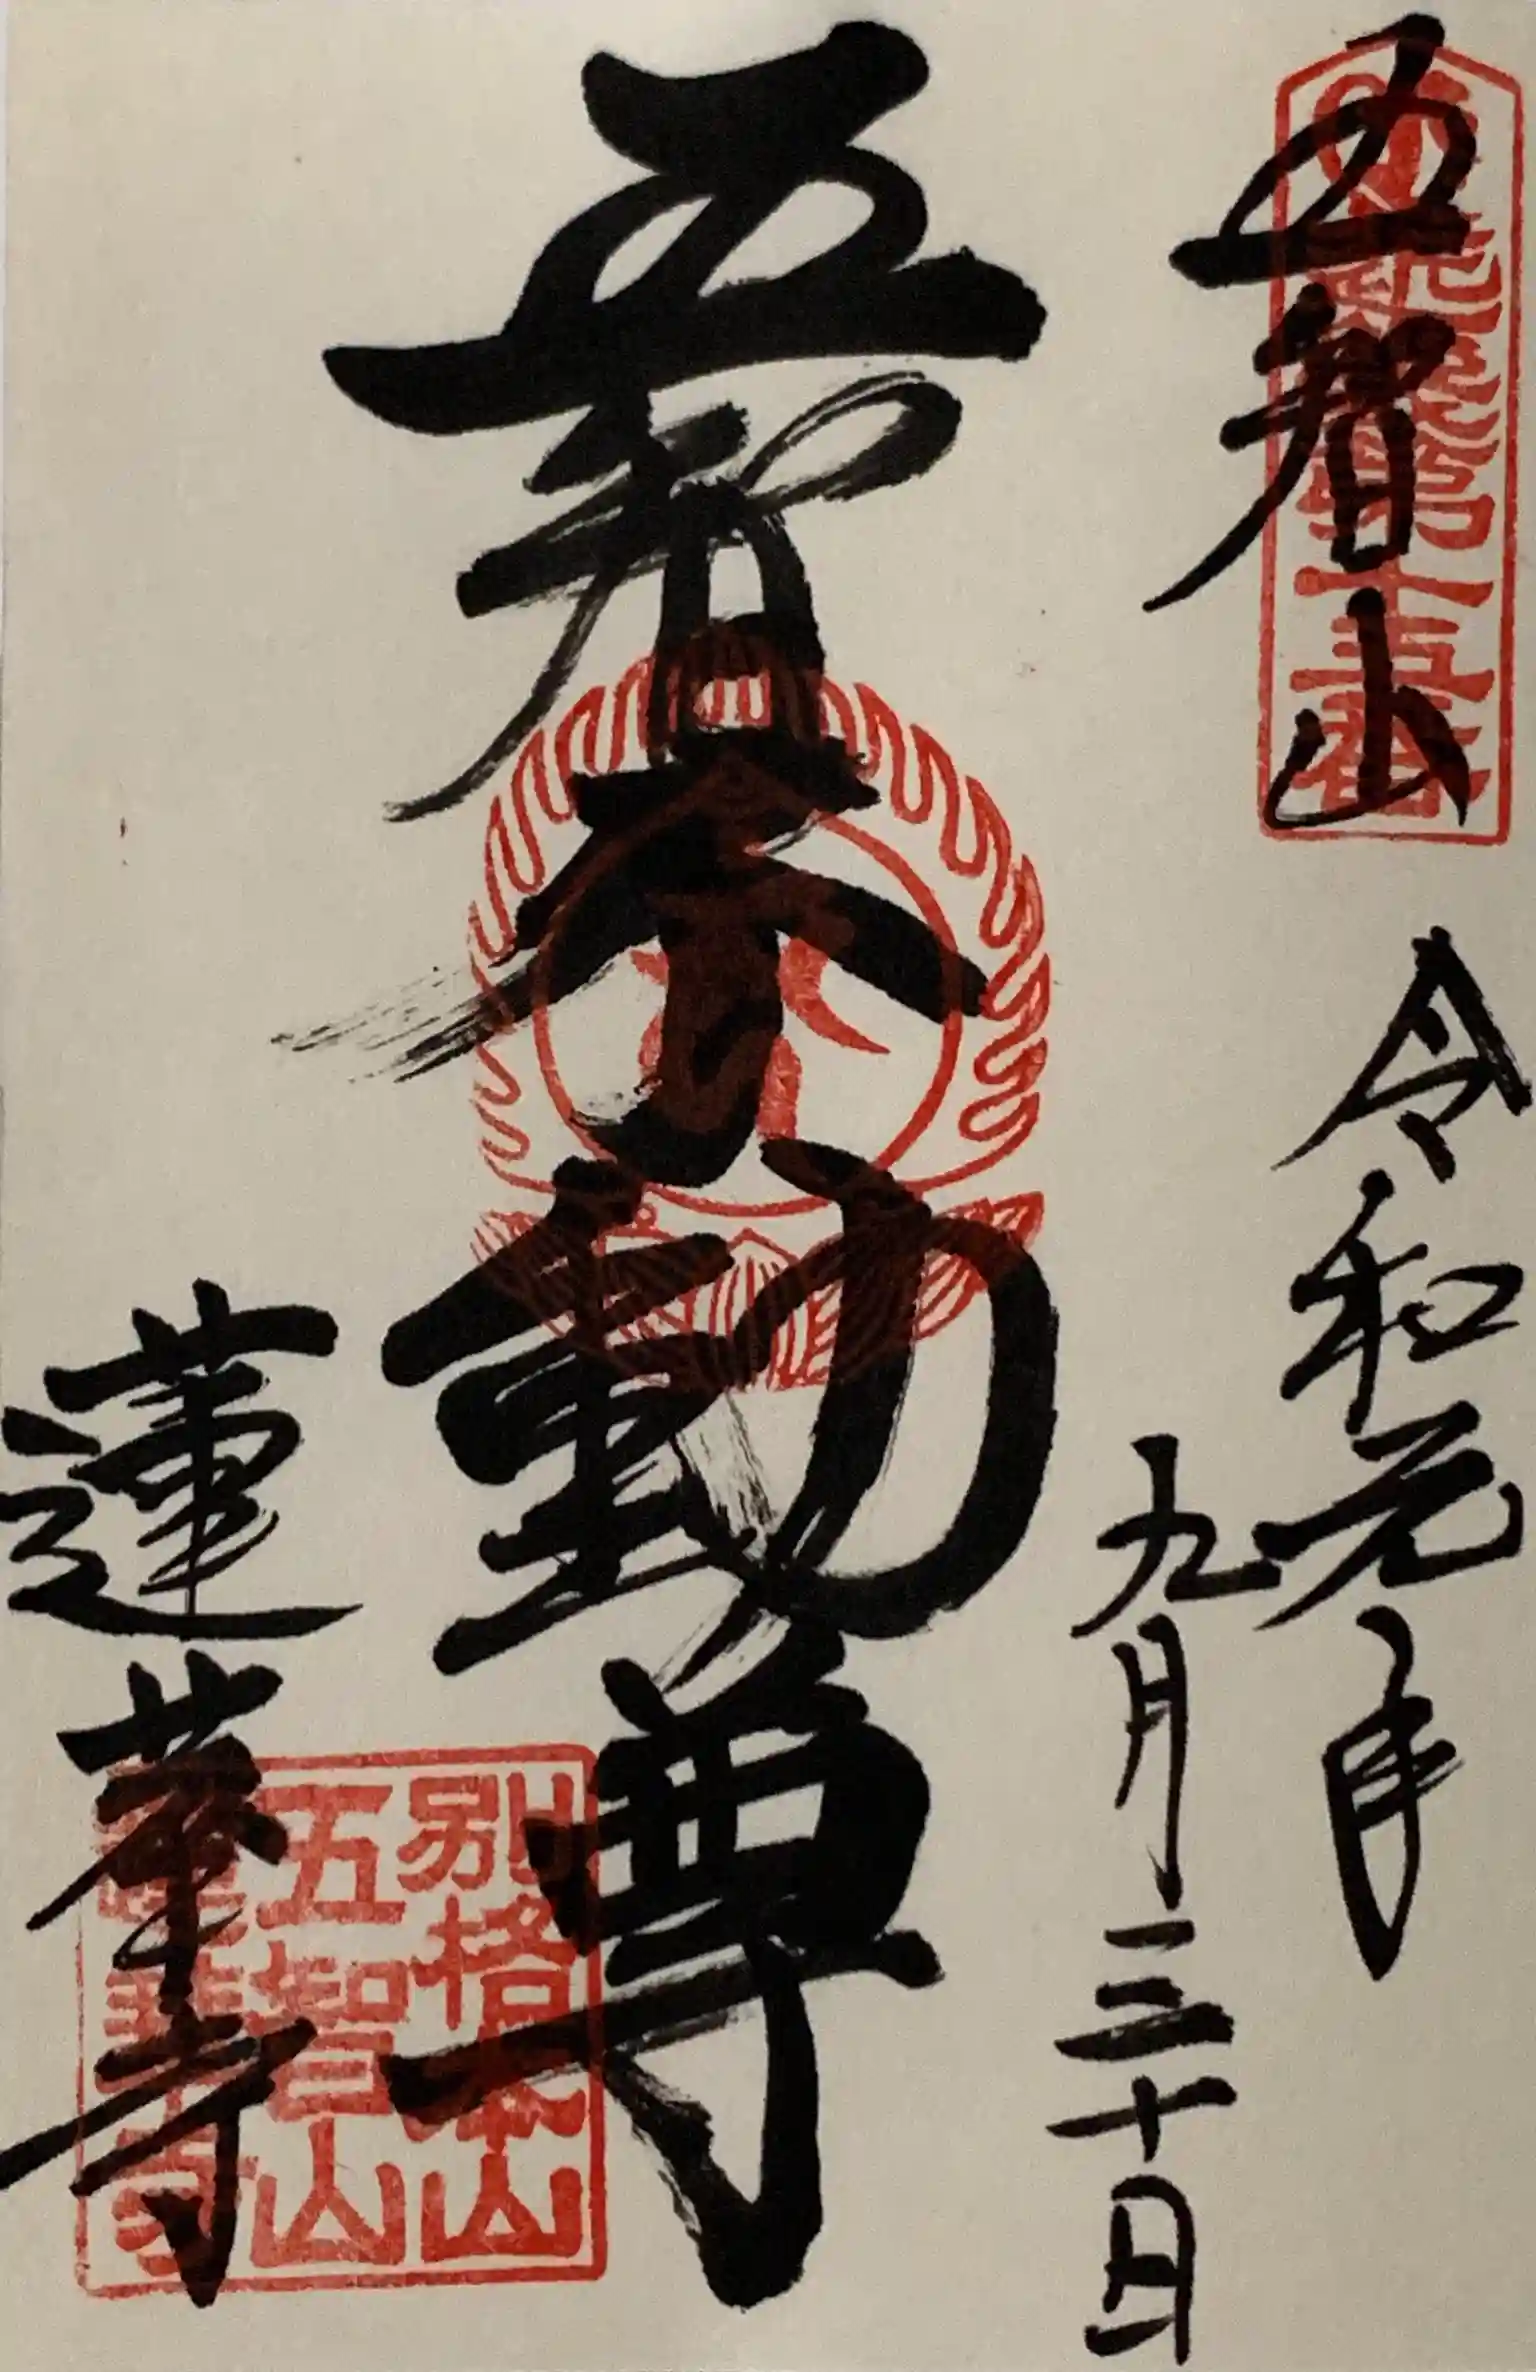 五智山
第十五番
令和元年
九月三十日
五智不動尊
蓮華寺
別格本山
五智山
蓮華寺